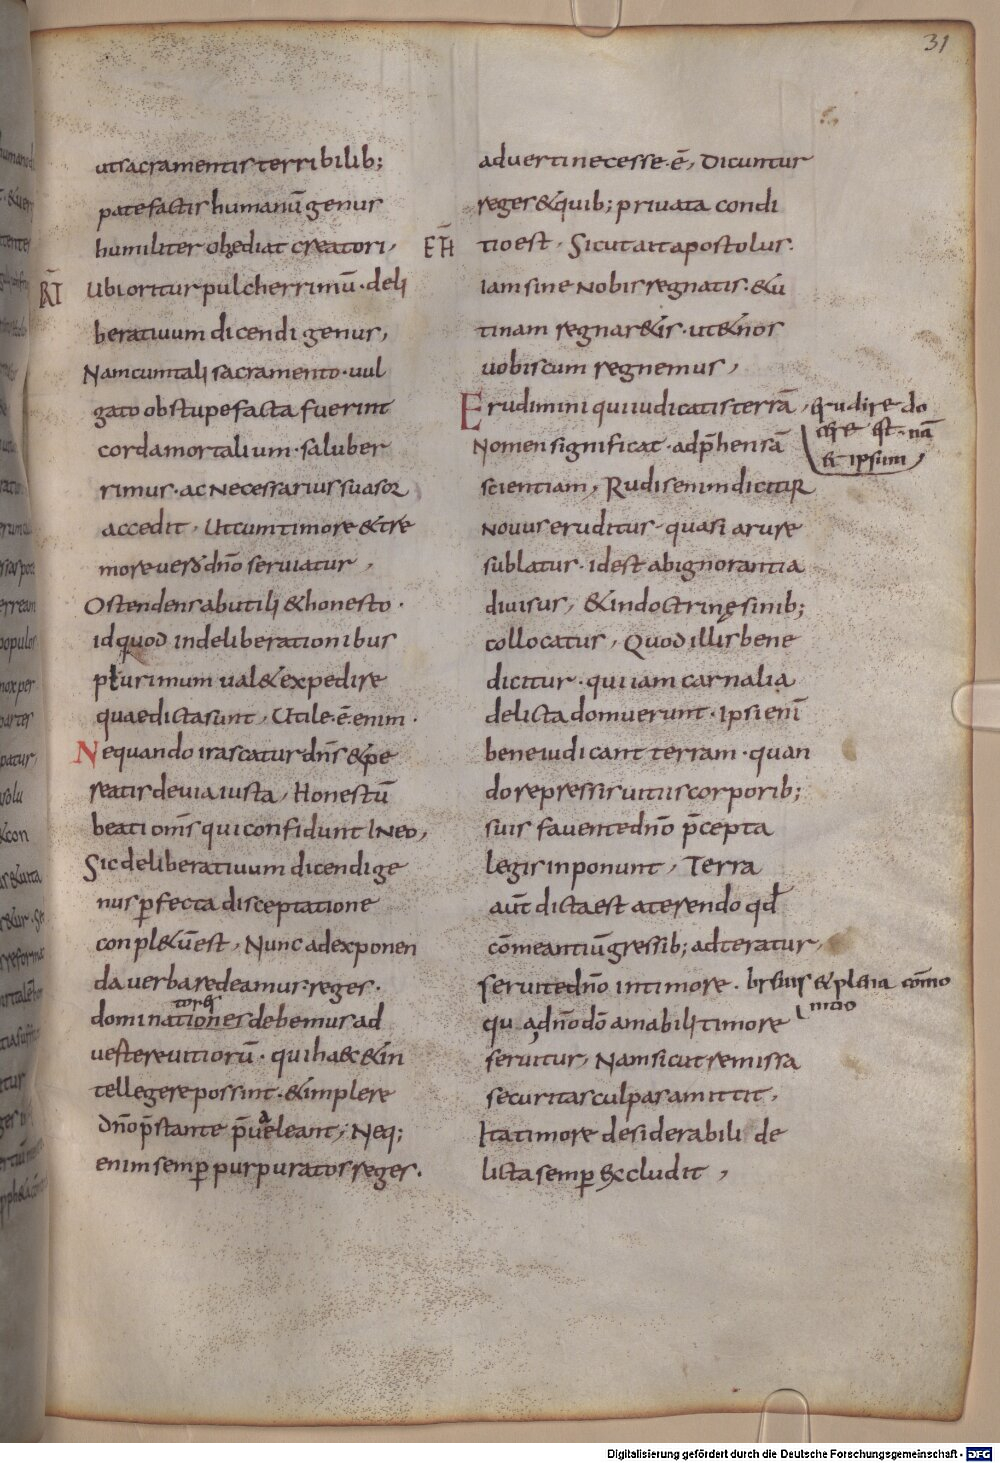 31
ut sacramentis terribilib;
patefactis humanū genus
humiliter obediat creatori,
RT Ubi oritur pulcherrimū · deli
beratiuum dicendi genus,
Nam cum tali sacramento · uul
gato obstupefacta fuerint
corda mortalium · saluber
rimus · ac necessarius suasor
accedit, Ut cum timore & tre
more uero dn̄o seruiatur,
Ostendens ab utili & honesto ·
id quod in deliberationibus
plurimum ual& expedire
quae dicta sunt, Utile · ē · enim ·
Nequando irascatur dn̄s & pe
reatis de uia iusta, Honestū
beati om̄s qui confidunt in eo,
Sic deliberatiuum dicendi ge
nus ꝑfecta disceptatione
conpl&ū est, Nunc ad exponen
da uerba redeamus reges ·
tores
dominationes debemus ad
uertere uitiorū · qui haec & in
tellegere possint · & implere
dn̄o p̄stante p̄ualeant, Neq;
enim semꝑ purpuratos reges ·
aduerti necesse · ē, Dicuntur
reges & quib; priuata condi
ETH tio est, Sicut ait apostolus ·
Iam sine nobis regnatis · & u
tinam regnar&is · ut & nos
uobiscum regnemus,
Erudimini qui iudicatis terrā, erudire do
cere est · nā
& ipsum,
Nomen significat · adp̄hensā
scientiam, Rudis enim dicitur
nouus eruditur · quasi a rure
sublatus · id est ab ignorantia
diuisus, & in doctrinę sinib;
collocatus, Quod illis bene
dicitur · qui iam carnalia
delicta domuerunt · Ipsi enī
bene iudicant terram · quan
do repressis uitiis corporib;
suis fauente dn̄o p̄cepta
legis inponunt, Terra
aūt dicta est a terendo qđ
cōmeantiū gressib; adteratur,
seruite dn̄o in timore · breuis & plena cōmo
nitio
qu a dn̄o dō amabili timore
seruitur, Nam sicut remissa
securitas culparam ittit,
Ita timore desiderabili de
licta semꝑ excludit,
Digitalisierung gefördert durch die Deutsche Forschungsgemeinschaft - DFG